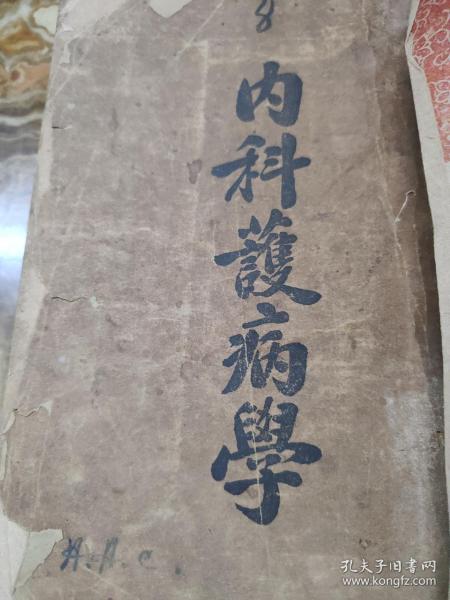 8
内科護病學
A.A.C.
孔夫子旧书网
www.kongfz.com